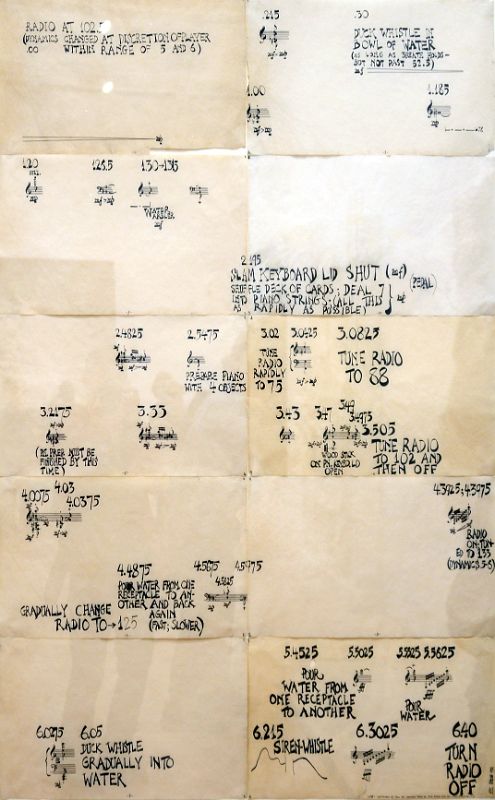 RADIO AT 102.5
(DYNAMICS CHANGED AT DISCRETION OF PLAYER
.00 WITHIN RANGE OF 5 AND 6)
.215
.30
DUCK WHISTLE IN
BOWL OF WATER
(AS LONG AS BREATH HOLDS—
BUT NOT PAST 52.5)
1.00
1.185
1.20
1.26.5
1.30→1.315
WATER
WARBLER
2.195
SLAM KEYBOARD LID SHUT
SHUFFLE DECK OF CARDS; DEAL 7
INTO PIANO STRINGS. (ALL THIS
AS RAPIDLY AS POSSIBLE)
(PEDAL)
2.4825
2.5475
PREPARE PIANO
WITH 4 OBJECTS
3.02
3.0425
3.0825
TUNE
RADIO
RAPIDLY
TO 75
TUNE RADIO
TO 88
3.2175
3.33
(PI. PREP. MUST BE
FINISHED BY THIS
TIME)
3.43
3.47
3.49
3.4975
3.505
WOOD STICK
ON PN. KEYBD LID
OPEN
TUNE RADIO
TO 102 AND
THEN OFF
4.0075
4.03
4.0375
4.4875
POUR WATER FROM ONE
RECEPTACLE TO AN-
OTHER AND BACK
AGAIN
(FAST; SLOWER)
4.5675
4.5825
4.5975
GRADUALLY CHANGE
RADIO TO→125
4.3925; 4.3975
RADIO
ON-TUN-
ED TO 133
(DYNAMICS 5-6)
6.0275
6.05
DUCK WHISTLE
GRADUALLY INTO
WATER
5.4525
5.5025
5.5325
5.5625
POUR
WATER FROM
ONE RECEPTACLE
TO ANOTHER
POUR
WATER
6.215
6.3025
6.40
SIREN-WHISTLE
TURN
RADIO
OFF